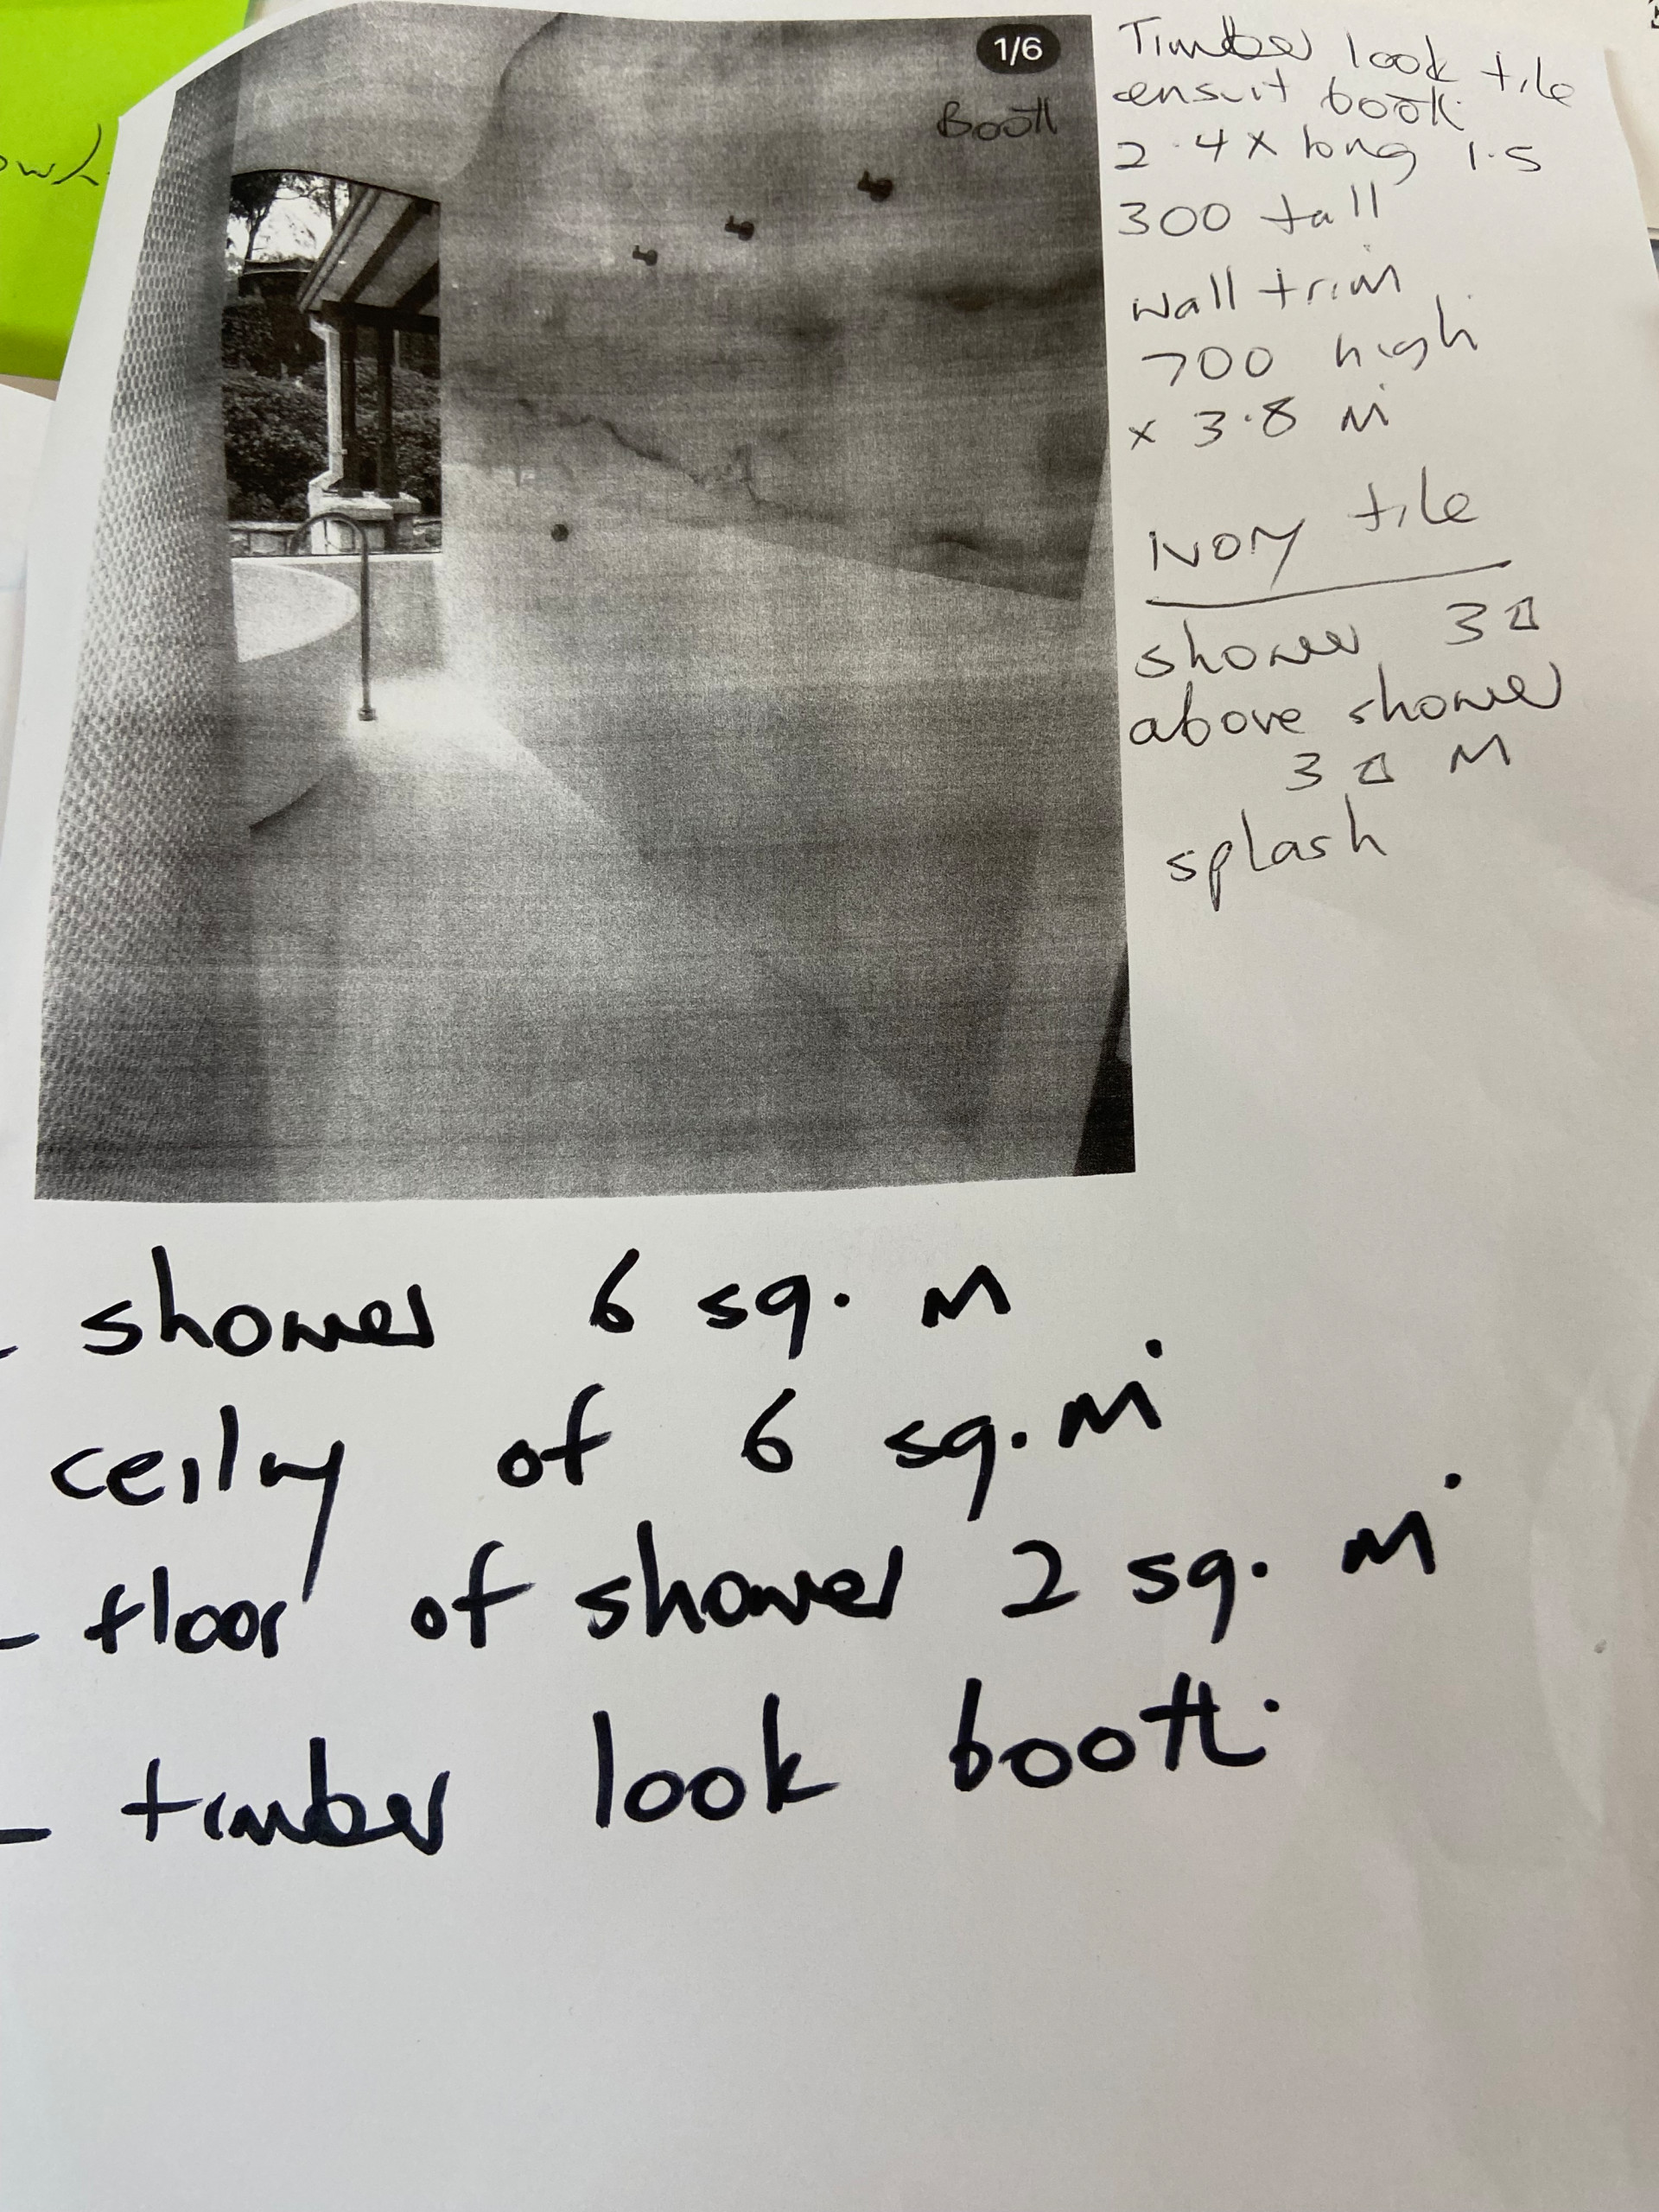 1/6
Booth
Timber look tile
ensuit booth
2.4 x long 1.5
300 tall
wall trim
700 high
x 3.8 m
ivory tile
shower 3 □
above shower
3 □ M
splash
- shower 6 sq. m
ceiling of 6 sq. m
- floor of shower 2 sq. m
- timber look booth